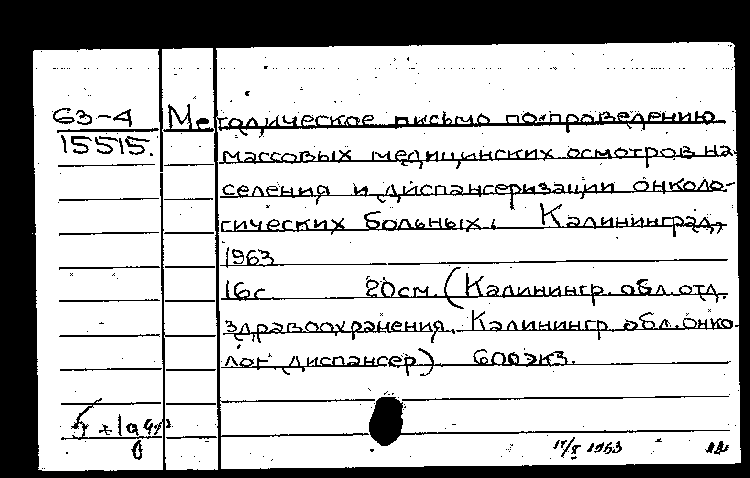 63-4 Методическое письмо по проведению
15515. массовых медицинских осмотров на-
селения и диспансеризации онколо-
гических больных. Калининград,
1963
16с 20см. (Калинингр. обл. отд.
здравоохранения. Калинингр. обл. онко-
лог. диспансер) 600экз.
1963